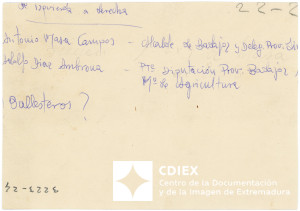 De izquierda a derecha
22-2
Antonio Masa Campos - Alcalde de Badajoz y Deleg. Prov.
Adolfo Díaz Ambrona Pte Diputación Prov. Badajoz
Mº de Agricultura
Ballesteros?
3223-24
CDIEX
Centro de la Documentación
y de la Imagen de Extremadura